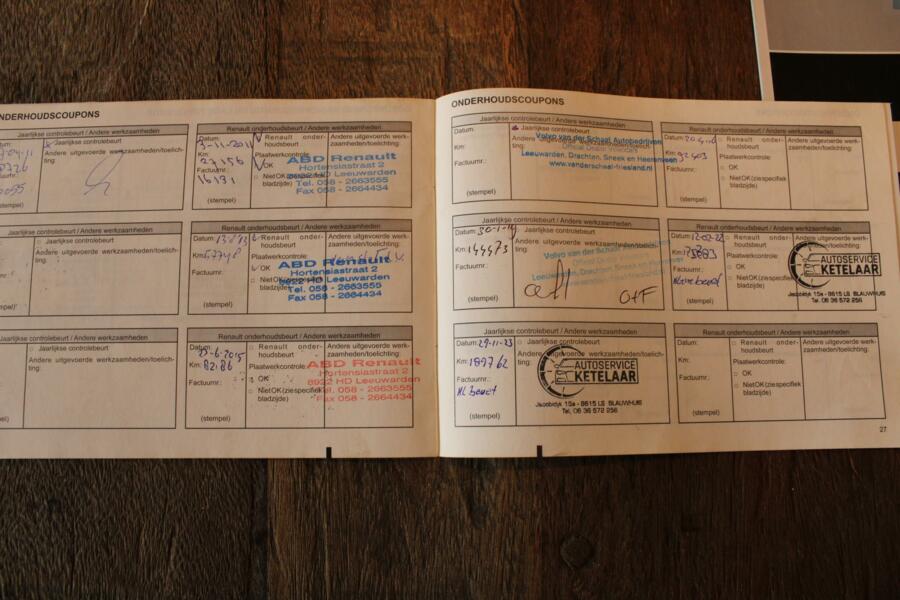 ONDERHOUDSCOUPONS
Jaarlijkse controlebeurt / Andere werkzaamheden
Jaarlijkse controlebeurt
Andere uitgevoerde werkzaamheden/toelichting:
(stempel)
Renault onderhoudsbeurt / Andere werkzaamheden
Datum: 3-11-2011
Km: 27156
Factuurnr.: 16131
(stempel)
Renault onderhoudsbeurt
Plaatwerkcontrole:
OK
Niet OK (zie specifiek bladzijde)
Andere uitgevoerde werkzaamheden/toelichting:
ABD Renault
Hortensiastraat 2
8922 HD Leeuwarden
Tel. 058 - 2663555
Fax 058 - 2664434
Jaarlijkse controlebeurt / Andere werkzaamheden
Jaarlijkse controlebeurt
Andere uitgevoerde werkzaamheden/toelichting:
(stempel)
Renault onderhoudsbeurt / Andere werkzaamheden
Datum:
Km:
Factuurnr.:
(stempel)
Renault onderhoudsbeurt
Plaatwerkcontrole:
OK
Niet OK (zie specifiek bladzijde)
Andere uitgevoerde werkzaamheden/toelichting:
ABD Renault
Hortensiastraat 2
8922 HD Leeuwarden
Tel. 058 - 2663555
Fax 058 - 2664434
Jaarlijkse controlebeurt / Andere werkzaamheden
Jaarlijkse controlebeurt
Andere uitgevoerde werkzaamheden/toelichting:
(stempel)
Renault onderhoudsbeurt / Andere werkzaamheden
Km:
Factuurnr.:
(stempel)
Renault onderhoudsbeurt
Plaatwerkcontrole:
OK
Niet OK (zie specifiek bladzijde)
Andere uitgevoerde werkzaamheden/toelichting:
ABD Renault
Hortensiastraat 2
8922 HD Leeuwarden
Tel. 058 - 2663555
Fax 058 - 2664434
ONDERHOUDSCOUPONS
Jaarlijkse controlebeurt / Andere werkzaamheden
Datum:
Km:
Factuurnr.:
(stempel)
Jaarlijkse controlebeurt
Volvo van der Schaaf Autobedrijven
Official Dealer
Leeuwarden, Drachten, Sneek en Heerenveen
www.vanderschaaf-friesland.nl
Renault onderhoudsbeurt / Andere werkzaamheden
Datum:
Km:
Factuurnr.:
(stempel)
Renault onderhoudsbeurt
Plaatwerkcontrole:
OK
Niet OK (zie specifiek bladzijde)
Andere uitgevoerde werkzaamheden/toelichting:
Jaarlijkse controlebeurt / Andere werkzaamheden
Datum:
Km: 144473
Factuurnr.:
(stempel)
Jaarlijkse controlebeurt
Andere uitgevoerde werkzaamheden/toelichting:
Volvo van der Schaaf
Renault onderhoudsbeurt / Andere werkzaamheden
Datum:
Km:
Factuurnr.:
(stempel)
Renault onderhoudsbeurt
Plaatwerkcontrole:
OK
Niet OK (zie specifiek bladzijde)
Andere uitgevoerde werkzaamheden/toelichting:
AUTOSERVICE
KETELAAR
Jacobidyk 15a - 8615 LS BLAUWHUIS
Tel. 06 36 572 256
Jaarlijkse controlebeurt / Andere werkzaamheden
Datum: 29-11-23
Km: 199762
Factuurnr.:
(stempel)
Jaarlijkse controlebeurt
Andere uitgevoerde werkzaamheden/toelichting:
AUTOSERVICE
KETELAAR
Jacobidyk 15a - 8615 LS BLAUWHUIS
Tel. 06 36 572 256
Renault onderhoudsbeurt / Andere werkzaamheden
Datum:
Km:
Factuurnr.:
(stempel)
Renault onderhoudsbeurt
Plaatwerkcontrole:
OK
Niet OK (zie specifiek bladzijde)
Andere uitgevoerde werkzaamheden/toelichting:
27